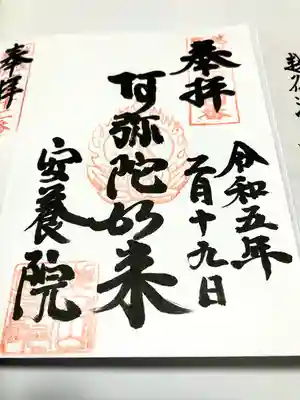 奉拝
令和五年
二月十九日
阿弥陀如来
安養院
奉拝